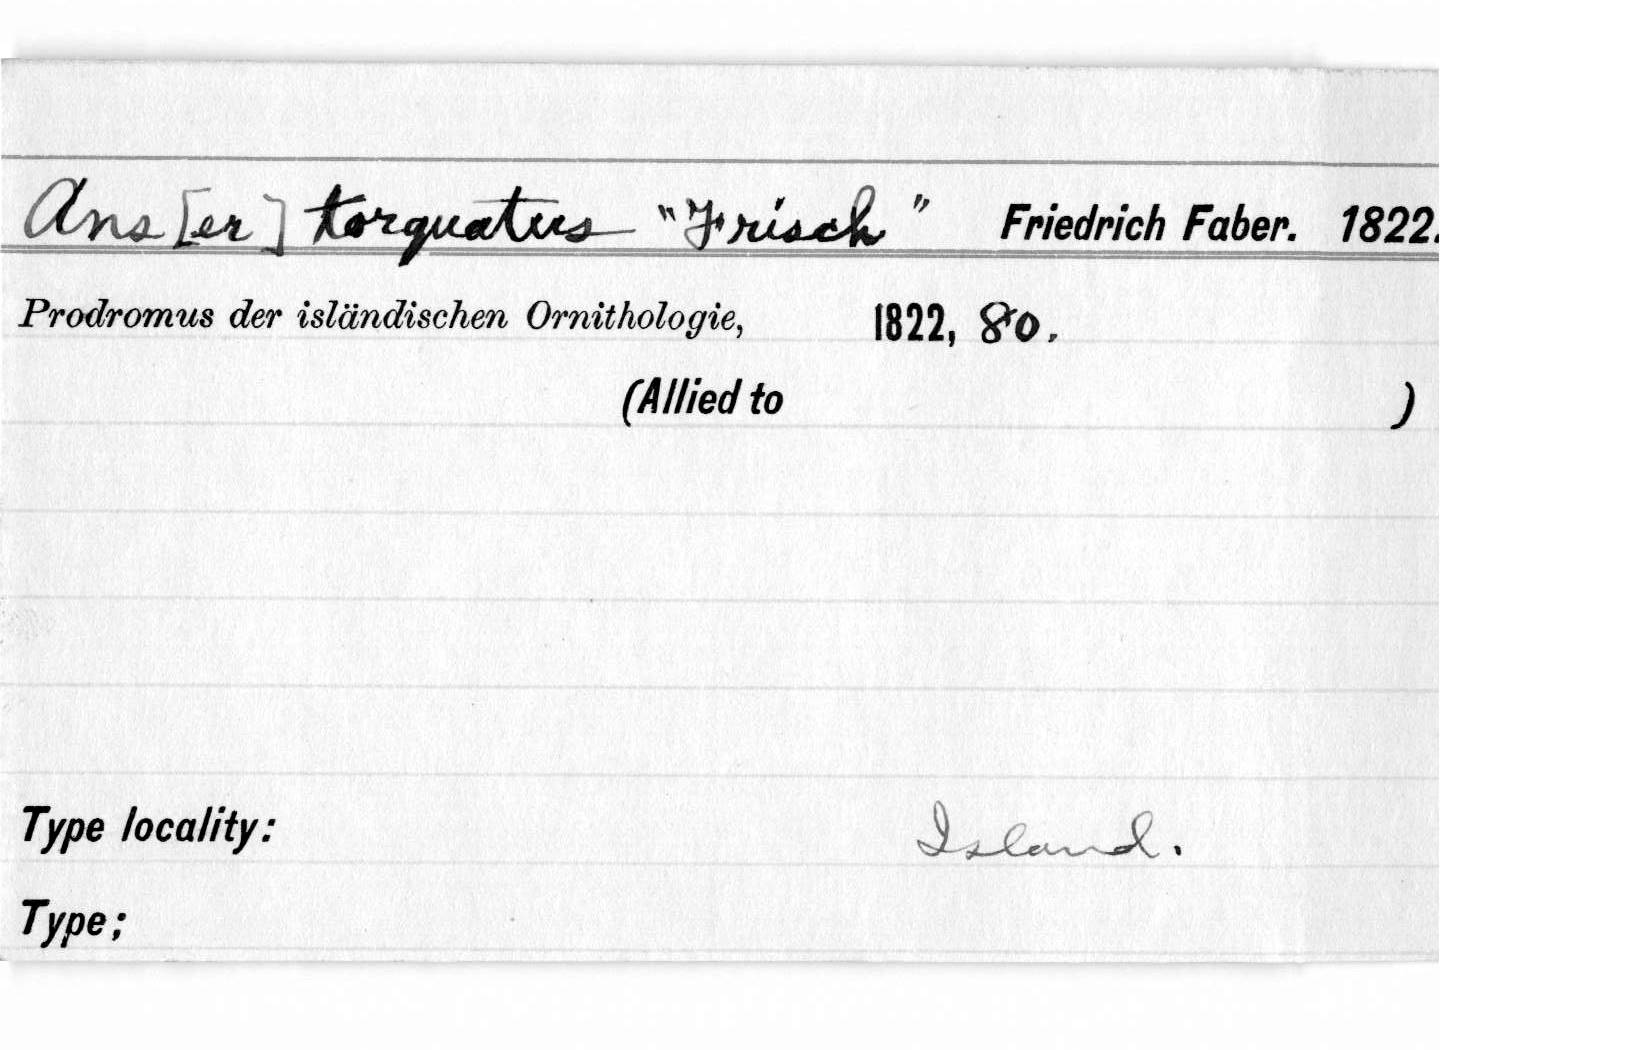 Ans[er] torquatus "Frisch" Friedrich Faber. 1822.
Prodromus der isländischen Ornithologie, 1822, 80.
(Allied to )
Type locality: Island.
Type;